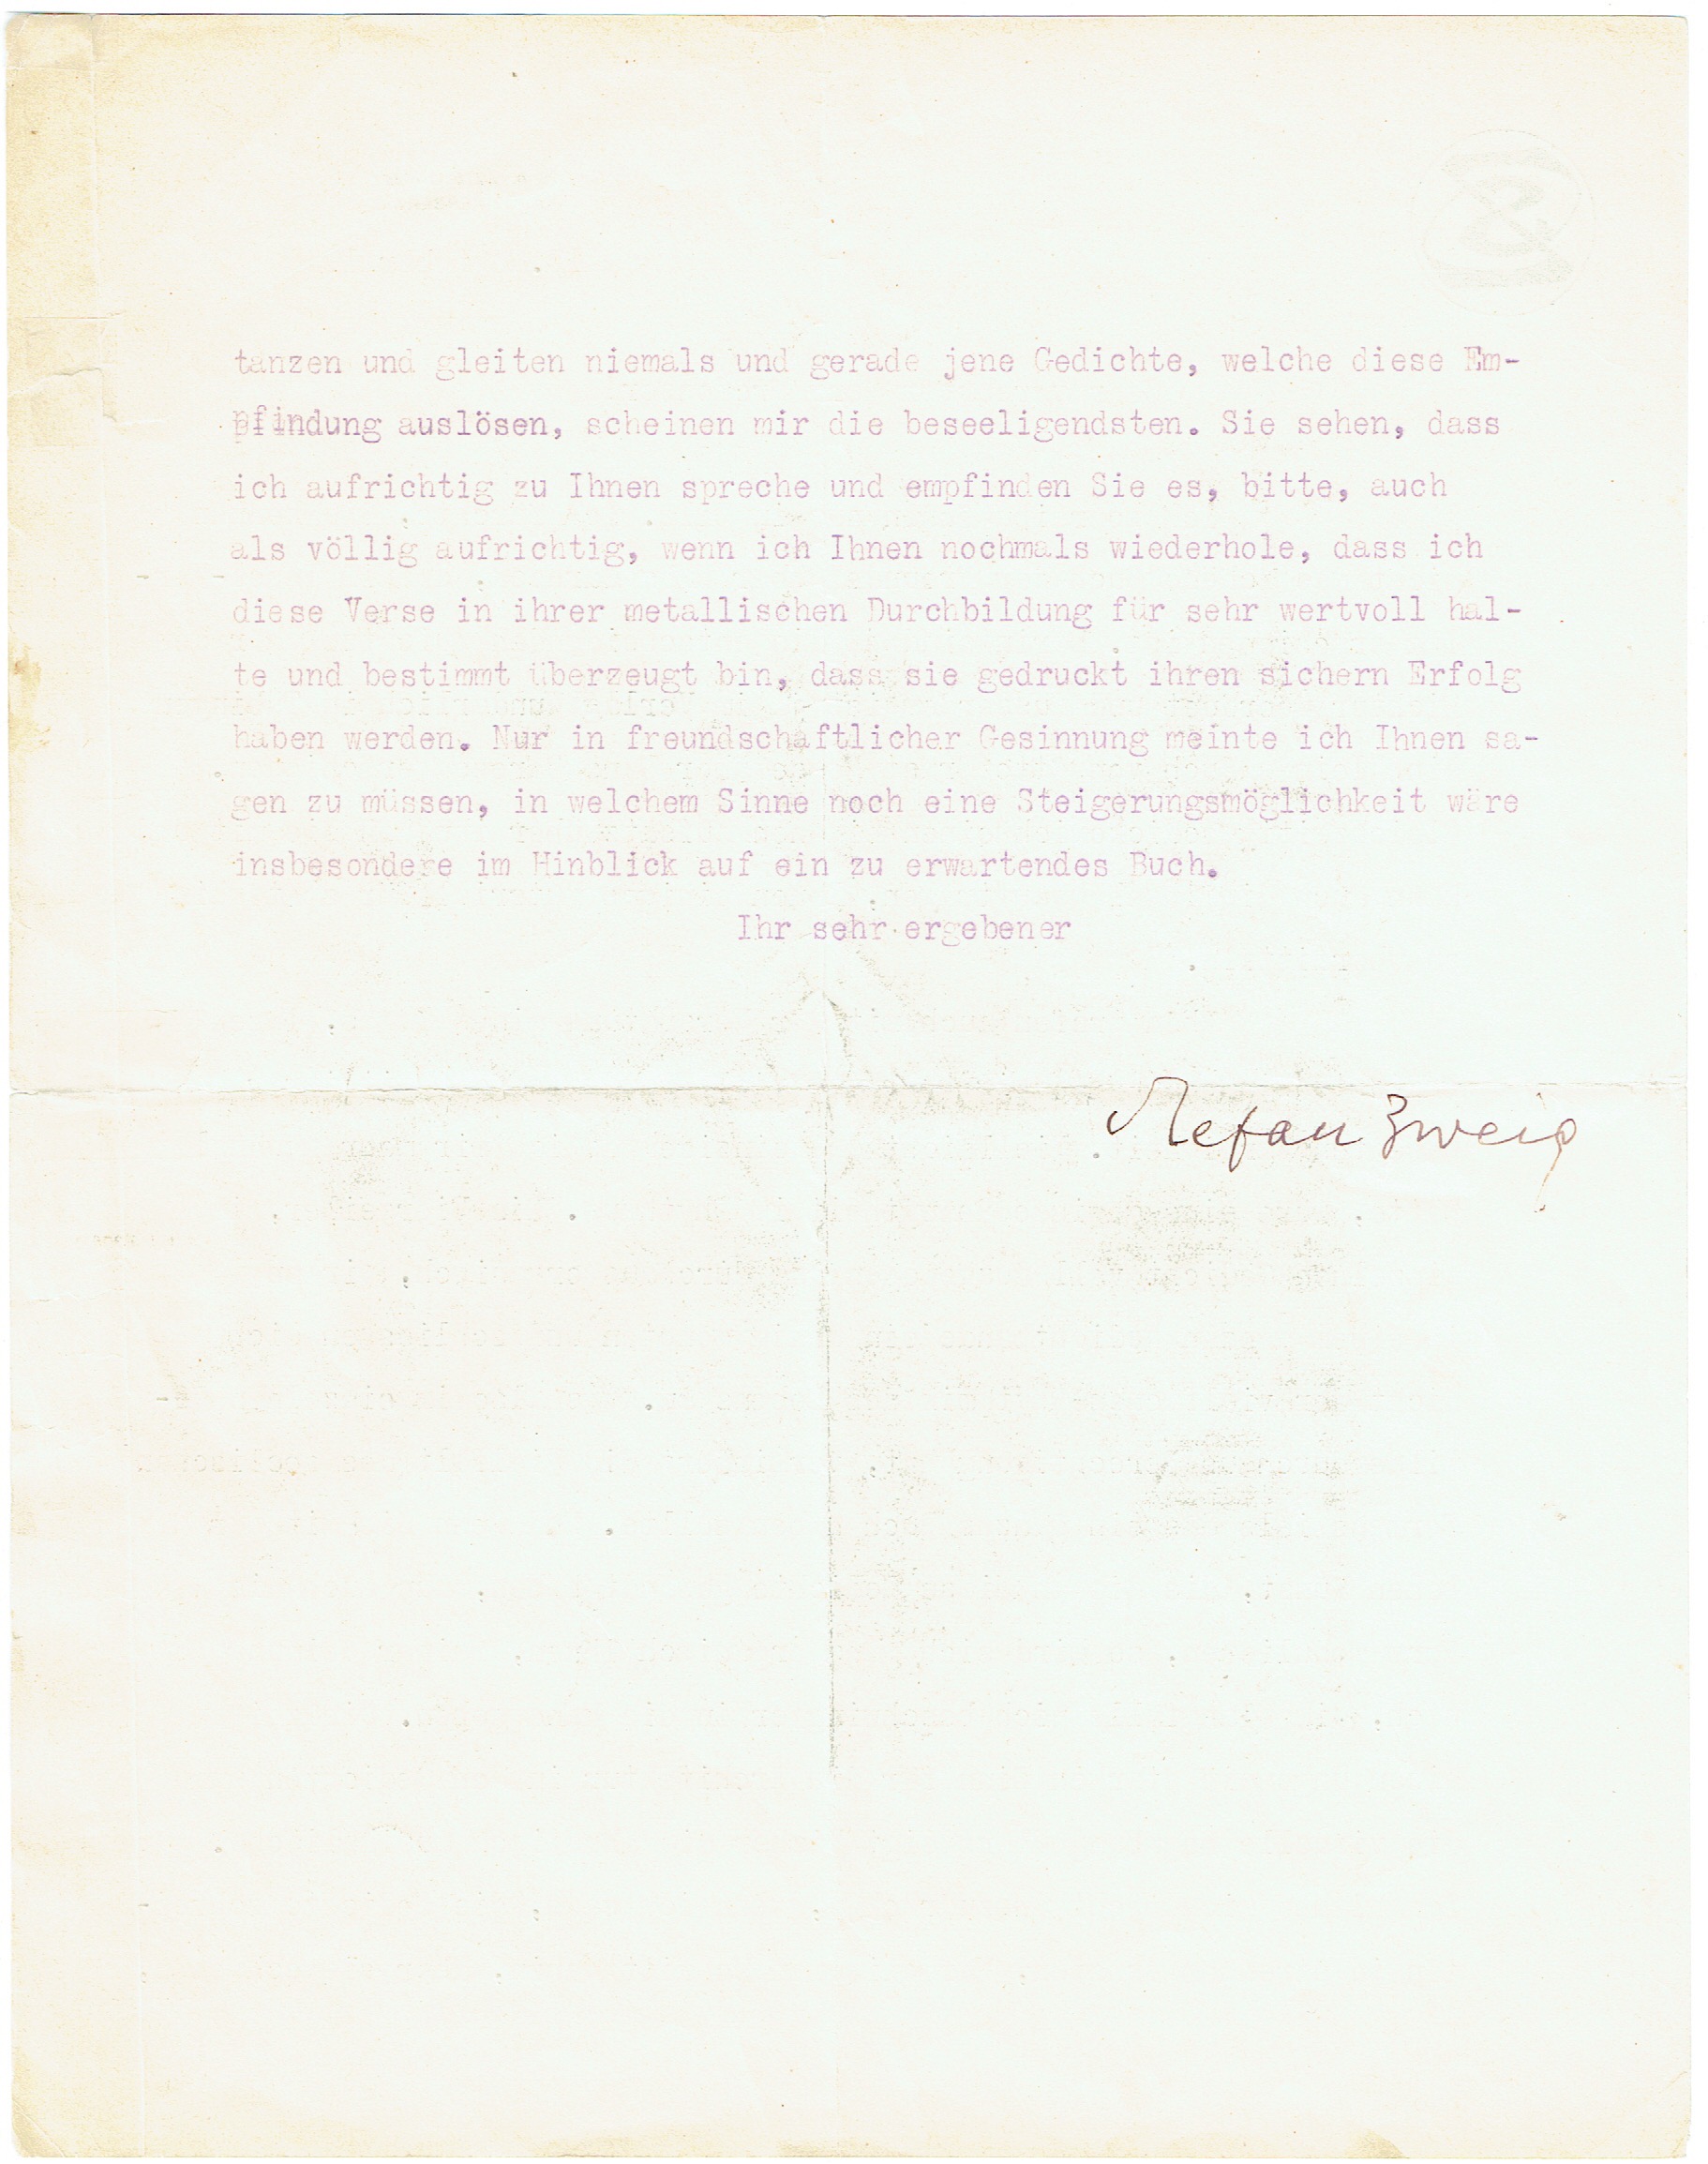 tanzen und gleiten niemals und gerade jene Gedichte, welche diese Em-
pfindung auslösen, scheinen mir die beseeligendsten. Sie sehen, dass
ich aufrichtig zu Ihnen spreche und empfinden Sie es, bitte, auch
als völlig aufrichtig, wenn ich Ihnen nochmals wiederhole, dass ich
diese Verse in ihrer metallischen Durchbildung für sehr wertvoll hal-
te und bestimmt überzeugt bin, dass sie gedruckt ihren sichern Erfolg
haben werden. Nur in freundschaftlicher Gesinnung meinte ich Ihnen sa-
gen zu müssen, in welchem Sinne noch eine Steigerungsmöglichkeit wäre
insbesondere im Hinblick auf ein zu erwartendes Buch.
Ihr sehr ergebener
Stefan Zweig